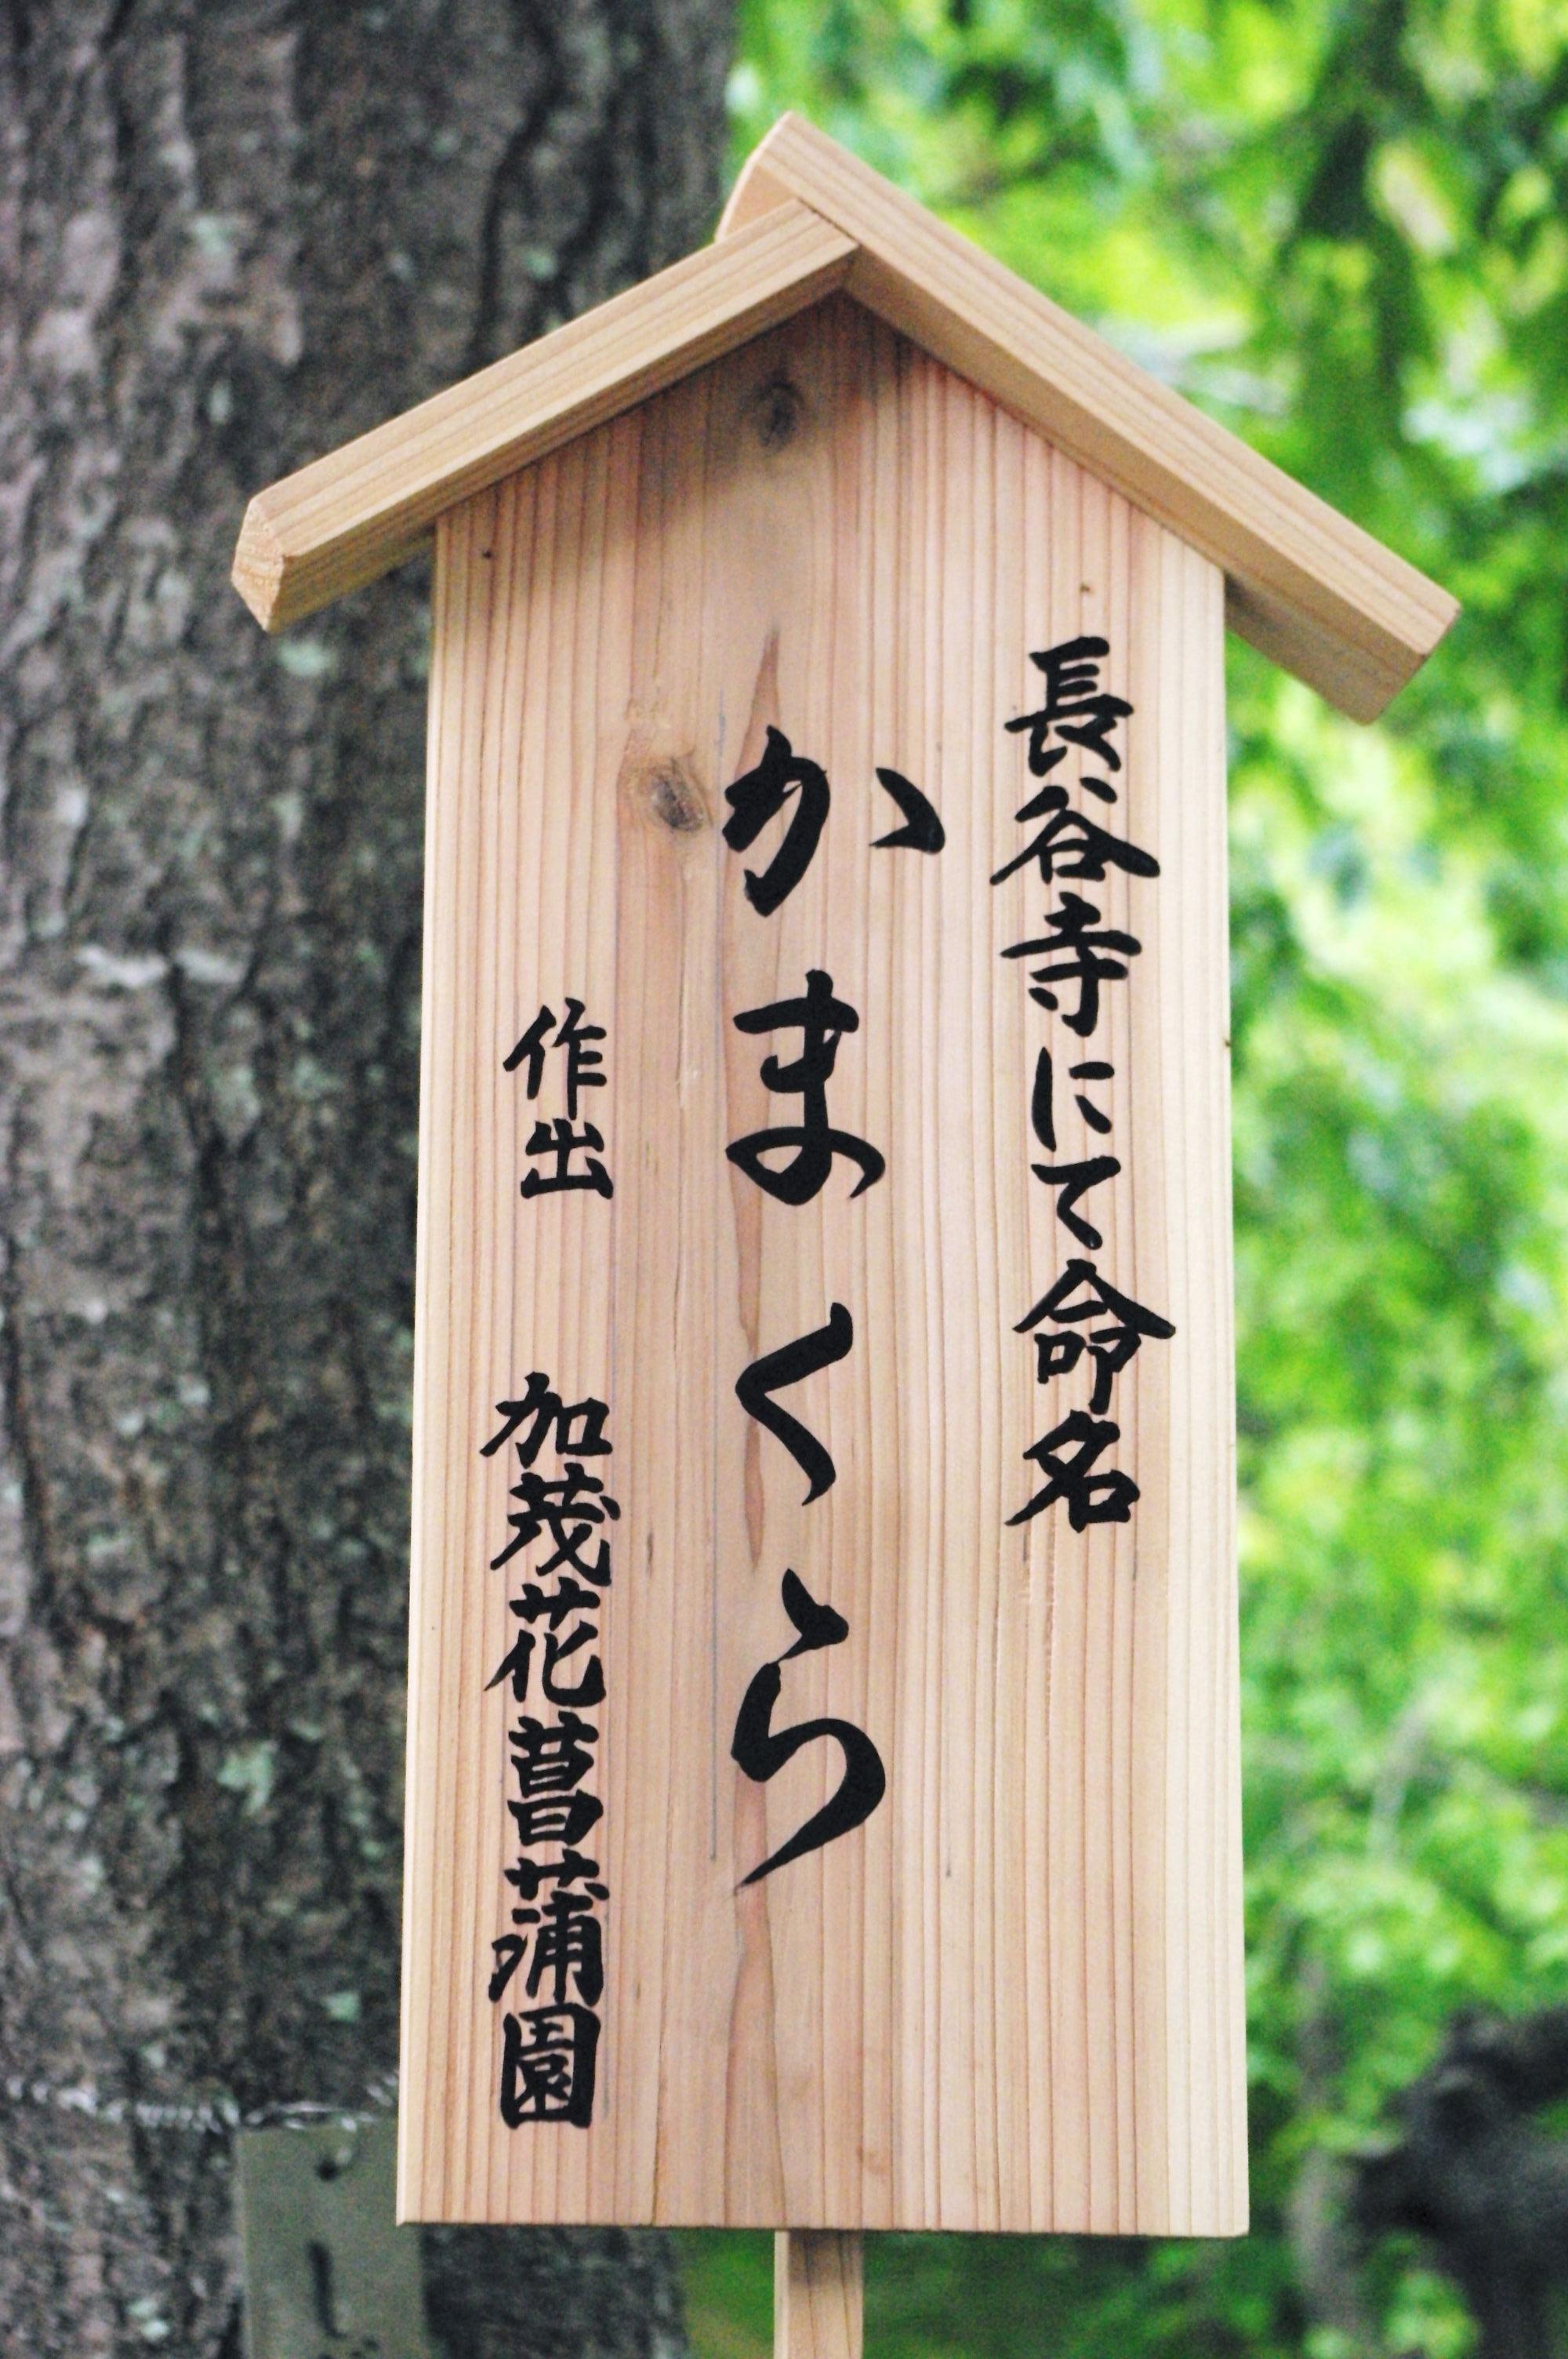 長谷寺にて命名
かまくら
作出 加茂花菖蒲園